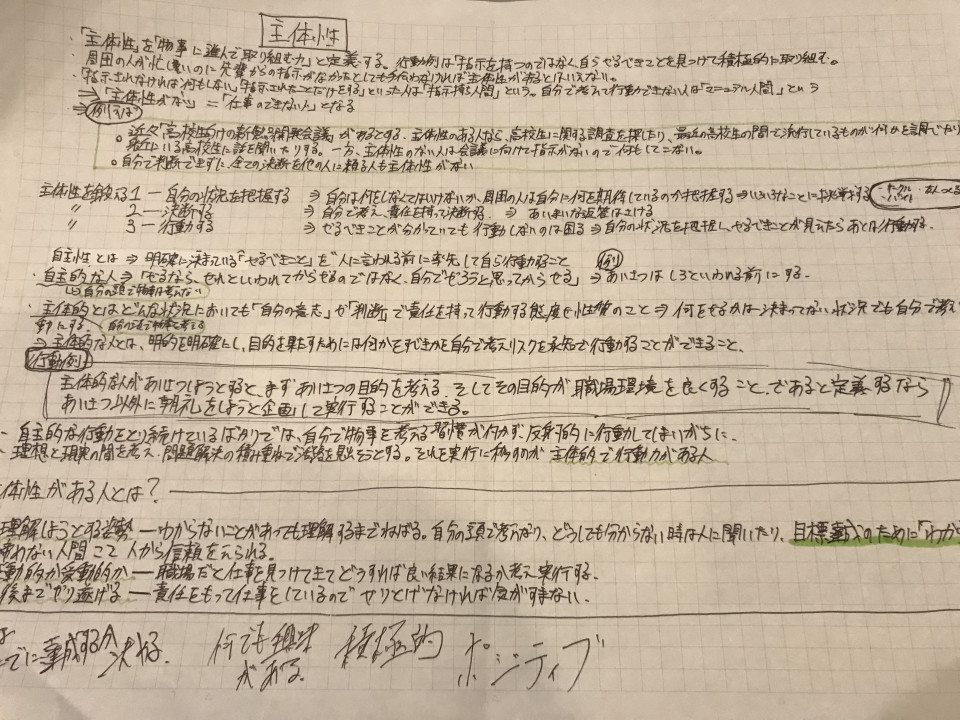 主体性
・「主体性」を「物事に進んで取り組む力」と定義する。行動例は「指示を待つのではなく自らやるべきことを見つけて積極的に取り組む。
・周囲の人が忙しいのに先輩からの指示がなかったとしても手伝わなければ主体性があるとはいえない。
・「指示されなければ何もしない」「指示されたことだけをする」といった人は「指示待ち人間」という。自分で考えて行動できない人は「マニュアル人間」という
⇒「主体性がない」=「仕事のできない人」となる
⇒例えば
○近々「高校生向けの新製品開発会議」があるとする。主体性のある人なら、高校生に関する調査を探したり、最近の高校生の間で流行しているものが何かを調べたり
身近にいる高校生に話を聞いたりする。一方、主体性のない人は会議に向けて指示がないので何もしてこない。
○自分で判断できずに、全ての決断を他の人に頼る人も主体性がない
主体性を鍛える1 ― 自分の状況を把握する ⇒ 自分は何をしなくてはいけないか、周囲の人は自分に何を期待しているのか把握する ⇒ いろいろなことに挑戦する ・サークル ・バイト
〃 2 ― 決断する ⇒ 自分で考え、責任を持って決断する。 ⇒ あいまいな返答はさける
〃 3 ― 行動する ⇒ やるべきことが分かっていても行動しないのは困る ⇒ 自分の状況を把握し、やるべきことが見えたらあとは行動する。
自主性とは ⇒ 明確に決まっている「やるべきこと」を人に言われる前に率先して自ら行動すること 例)
・自主的な人 ⇒「やるなら、やれといわれてからやるのではなく、自分でやろうと思ってからやる」⇒ あいさつはしろといわれる前にする。
↳自分の頭で物事は考えない
・主体的とはどんな状況においても「自分の意志」や「判断」で責任を持って行動する態度や性質のこと ⇒ 何をやるかは決まってない状況でも自分で考え
動にする。 自分の頭で物事を考える
⇒ 主体的な人とは、目的を明確にし、目的を果たすためには何かをすべきかを自分で考えリスクを承知で行動することができること、
行動例
主体的な人があいさつしようとすると、まずあいさつの目的を考える。そしてその目的が「職場環境を良くすること」であると定義するなら
あいさつ以外に朝礼をしようと企画して実行することができる。
・自主的な行動をとり続けているばかりでは、自分で物事を考える習慣が付かず、反射的に行動してしまいがちに、
・理想と現実の間を考え、問題解決の積み重ねで活路を見出そうとする。それを実行に移すのが主体的で行動力がある人
体性がある人とは?
理解しようとする姿勢 ― わからないことがあっても理解するまでねばる。自分の頭で考えたり、どうしても分からない時は人に聞いたり、目標達成のために「わから
わない人間こそ人から信頼をえられる。
動的か受動的か ― 職場だと仕事を見つけて全てどうすれば良い結果になるか考え実行する。
後までやり遂げる ― 責任をもって仕事をしているのでやりとげなければ気がすまない。
でに達成するか決める。 何でも興味がある。 積極的 ポジティブ